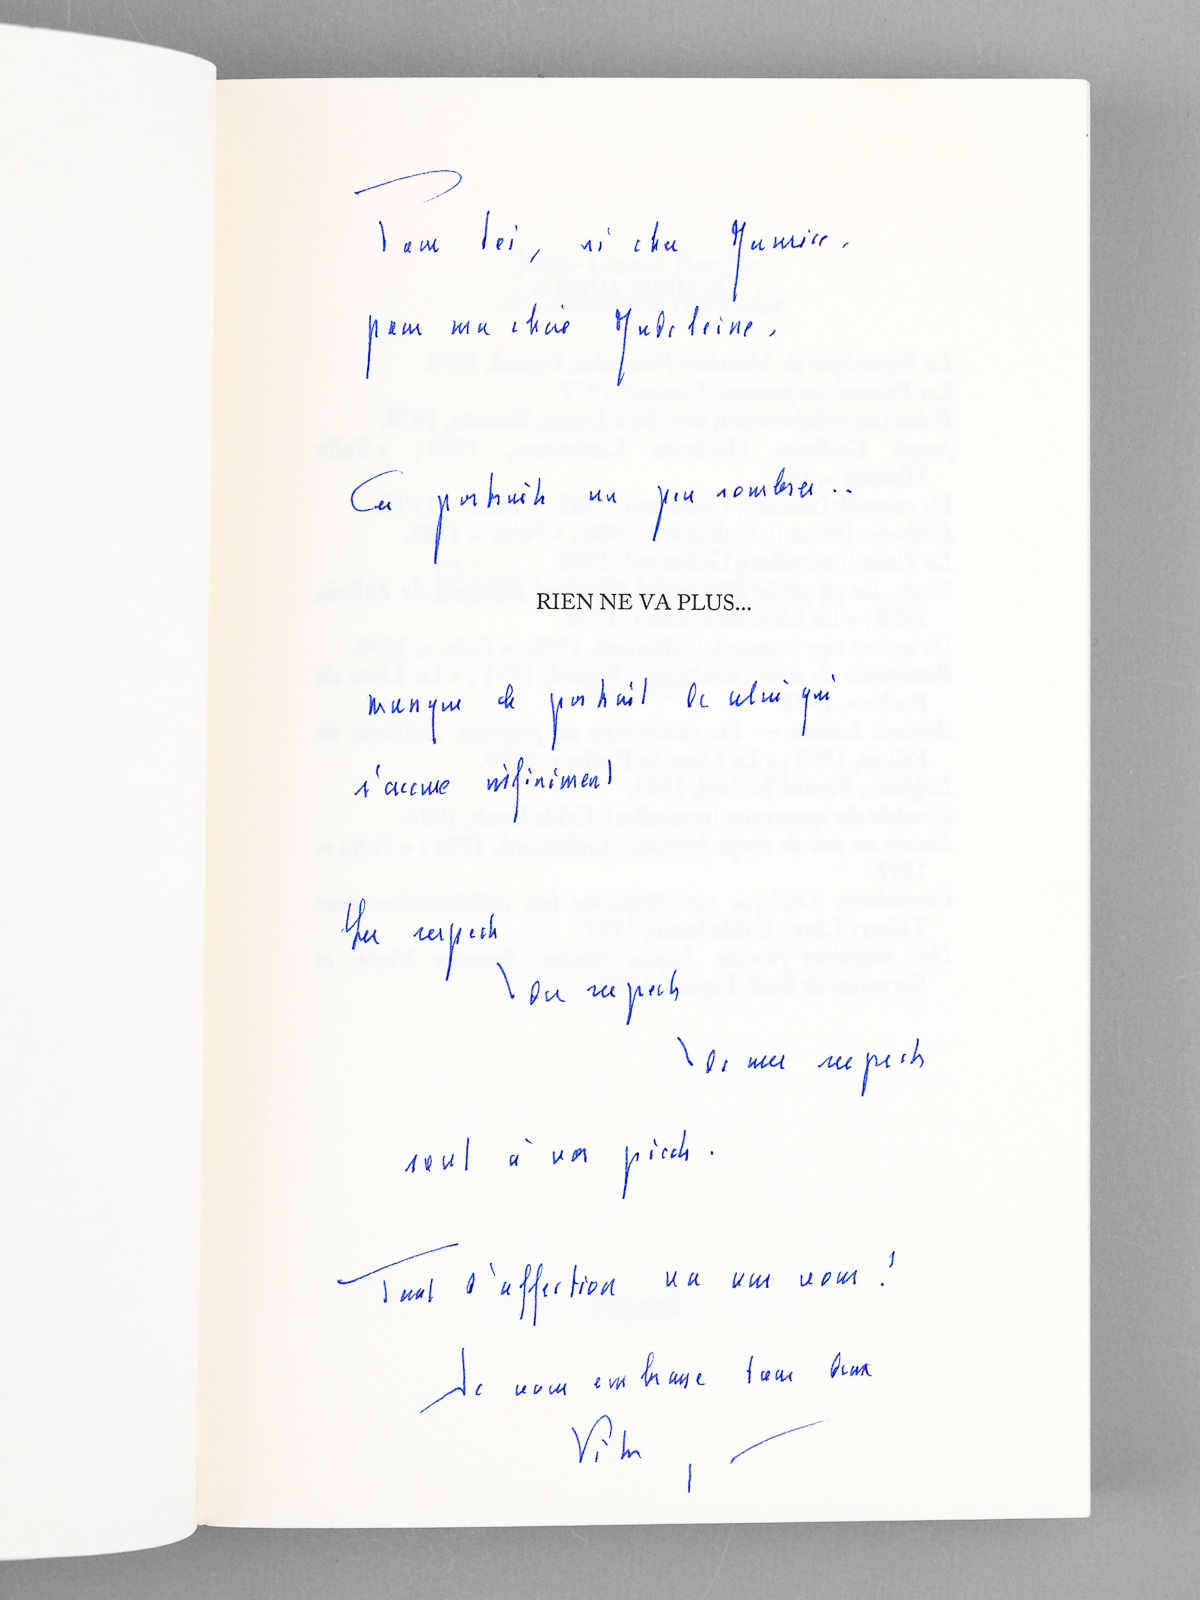 Pour toi, si cher Maurice,
pour ma chère Madeleine,
Ces portraits un peu sombres..
RIEN NE VA PLUS...
manque le portrait de celui qui
s'accuse infiniment
Les respects
\ des respects
\ de mes respects
sont à vos pieds.
Tant d'affection va vers vous !
Je vous embrasse tous deux